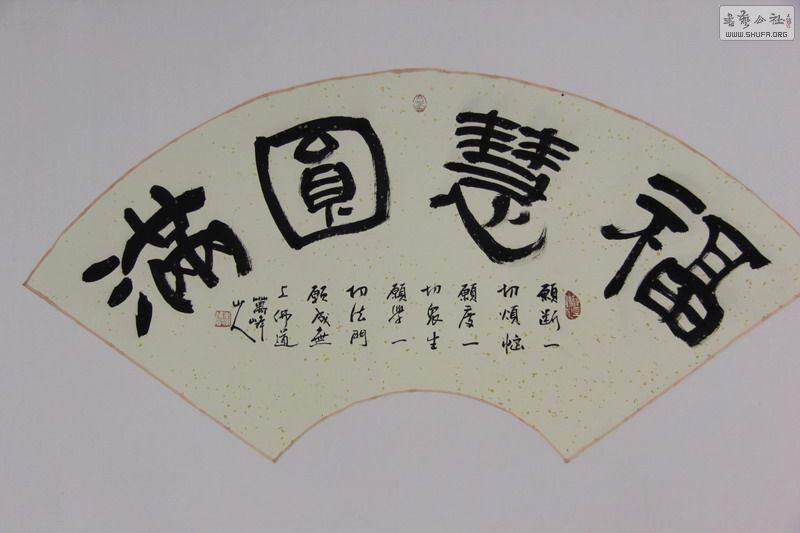 福慧圓滿
願斷一
切煩惱
願度一
切衆生
願學一
切法門
願成無
上佛道
嵩峰
山人
WWW.SHUFA.ORG